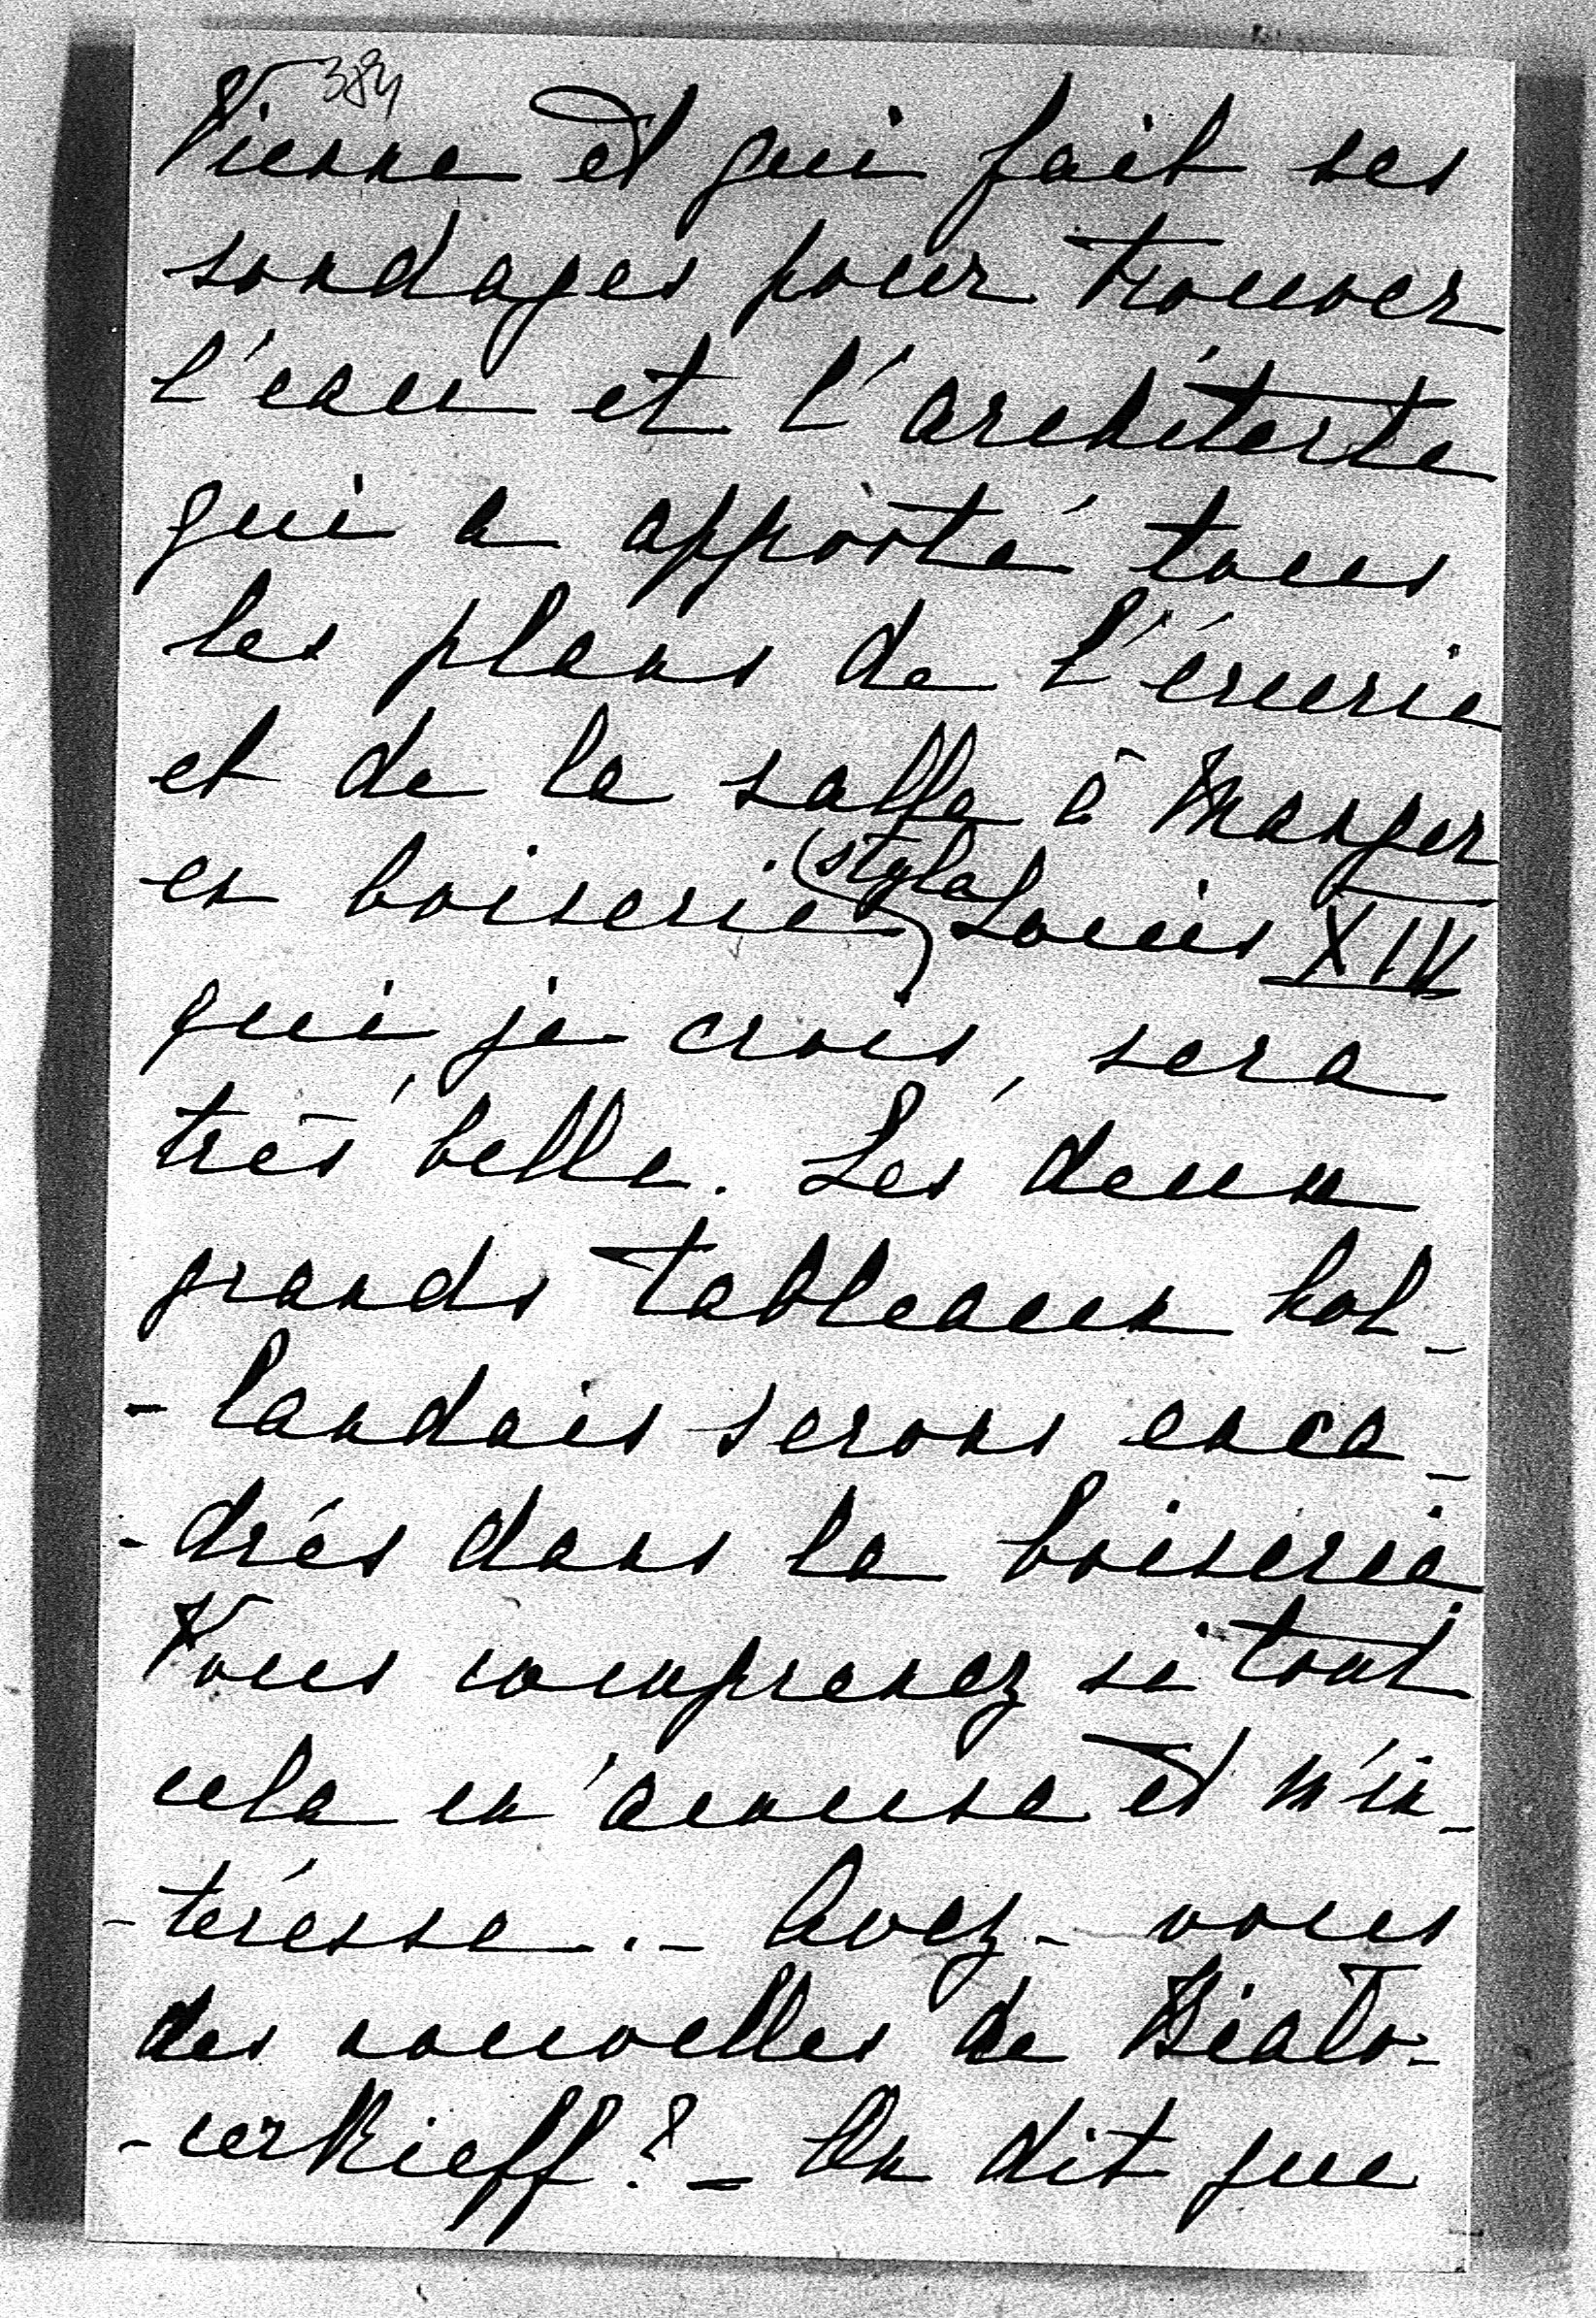 384
Vienne et qui fait ses
sondages pour trouver
l'eau et l'architecte
qui a apporté tous
les plans de l'écurie
et de la salle à manger
en boiserie (style) Louis XIV
qui, je crois, sera
très belle. Les deux
grands tableaux hol-
-landais serons enca-
-drés dans la boiserie
Vous comprenez si tout
cela m'amuse et m'in-
-téresse.- Avez-vous
des nouvelles de Bialo-
-cerkieff? - On dit que